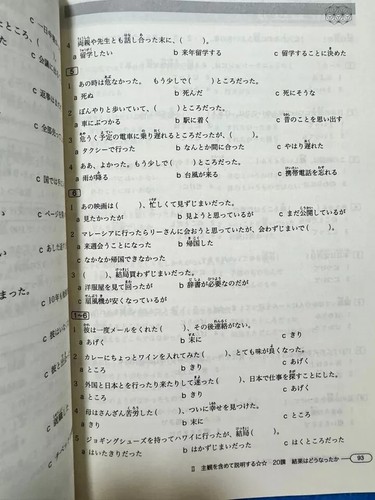 4 両親や先生とも話し合った末に、( )。
a 留学したい b 来年留学する c 留学することに決めた
5
1 あの時は危なかった。 もう少しで( )ところだった。
a 死ぬ b 死んだ c 死にそうな
2 ぼんやりと歩いていて、( )ところだった。
a 車にぶつかる b 駅に着く c 昔のことを思い出す
3 危うく予定の電車に乗り遅れるところだったが、( )。
a タクシーで行った b なんとか間に合った c やはり遅れた
4 ああ、よかった。もう少しで( )ところだった。
a 雨が降る b 台風が来る c 携帯電話を忘れる
6
1 あの映画は( )、忙しくて見ずじまいだった。
a 見たかったが b 見ようと思っているが c まだ公開しているが
2 マレーシアに行ったらリーさんに会おうと思っていたが、会わずじまいで( )。
a 来週会うことになった b 帰国した
c なかなか帰国できなかった
3 ( )、結局買わずじまいだった。
a 洋服屋を見て回ったが b 辞書が必要なのだが
c 扇風機が安くなっているが
1~6
1 彼は一度メールをくれた( )、その後連絡がない。
a あげく b 末に c きり
2 カレーにちょっとワインを入れてみた( )、とても味が良くなった。
a ところ b きり c あげく
3 外国と日本とを行ったり来たりして迷った( )、日本で仕事を探すことにした。
a ところ b きり c 末に
4 母はさんざん苦労した( )、ついに幸せを見つけた。
a きり b 末に c ところ
5 ジョギングシューズを持ってハワイに行ったが、結局( )。
a はいたきりだった b はかずじまいだった c はくところだった
II 主観を含めて説明する☆☆ 20課 結果はどうなったか
93